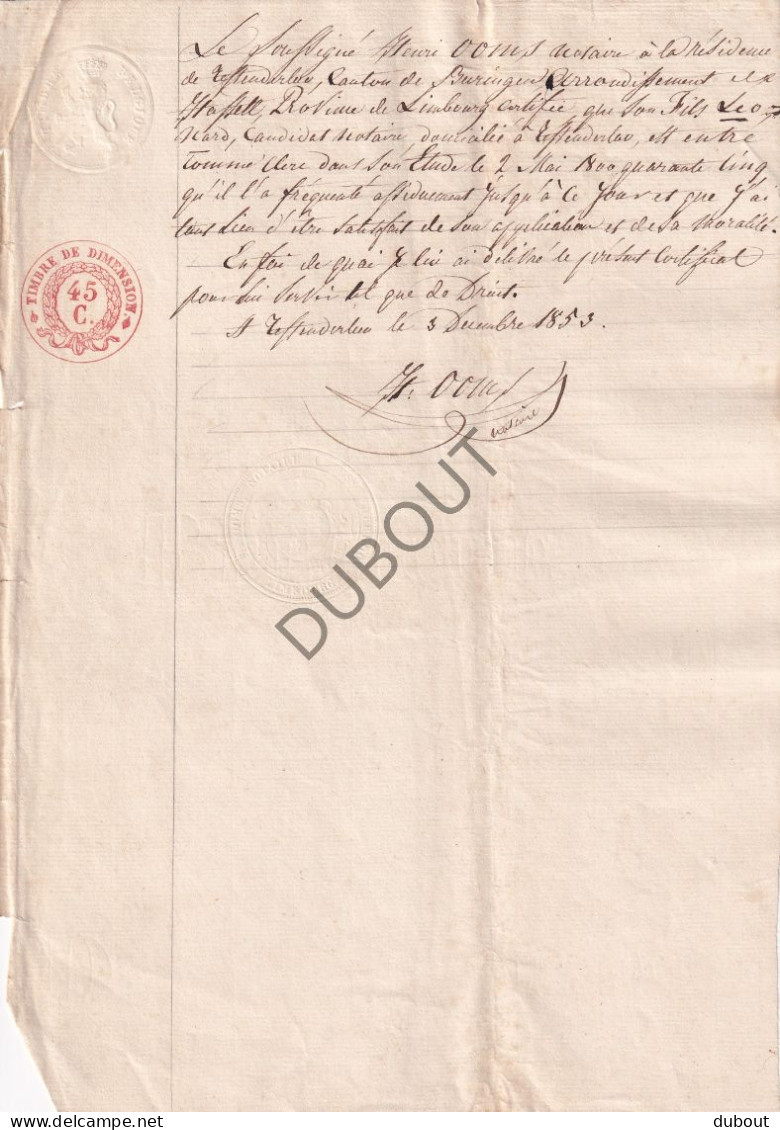 Le Soussigné Henri Ooms notaire à la résidence
de Tessenderloo, Canton de Beeringen Arrondissement de
Hasselt, Province de Limbourg Certifie que son Fils Leo-
nard, Candidat notaire domicilié à Tessenderloo, est entré
comme Clerc dans son Etude le 2 Mai 1800 quarante Cinq
qu'il l'a fréquenté assidument jusqu'à ce jour et que j'ai
tout Lieu d'être satisfait de son application et de sa moralité.
En foi de quoi je lui ai délivré le présent Certificat
pour lui servir tel que de Droit.
A Tessenderloo le 3 Decembre 1853.
H. Ooms
notaire
TIMBRE DE DIMENSION
45
C.
DUBOUT
delcampe.net
dubout